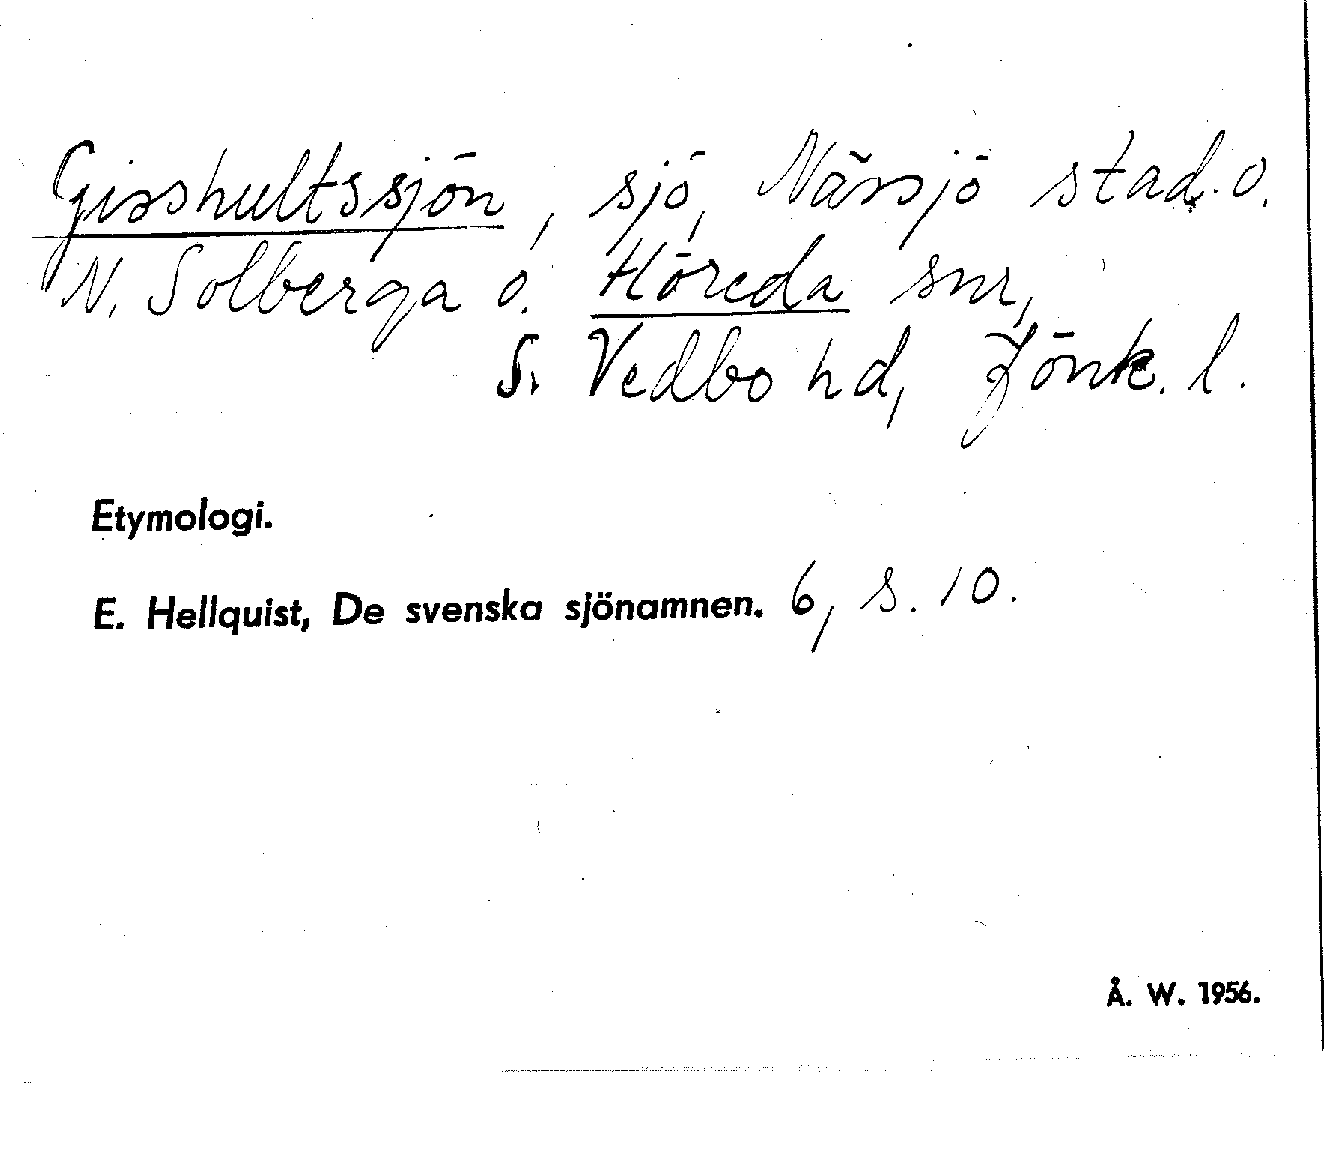 Gisshultssjön, sjö, Nässjö stad o.
N. Solberga o. Höreda snr,
S. Vedbo hd, Jönk. l.
Etymologi.
E. Hellquist, De svenska sjönamnen. 6, s. 10.
Å. W. 1956.